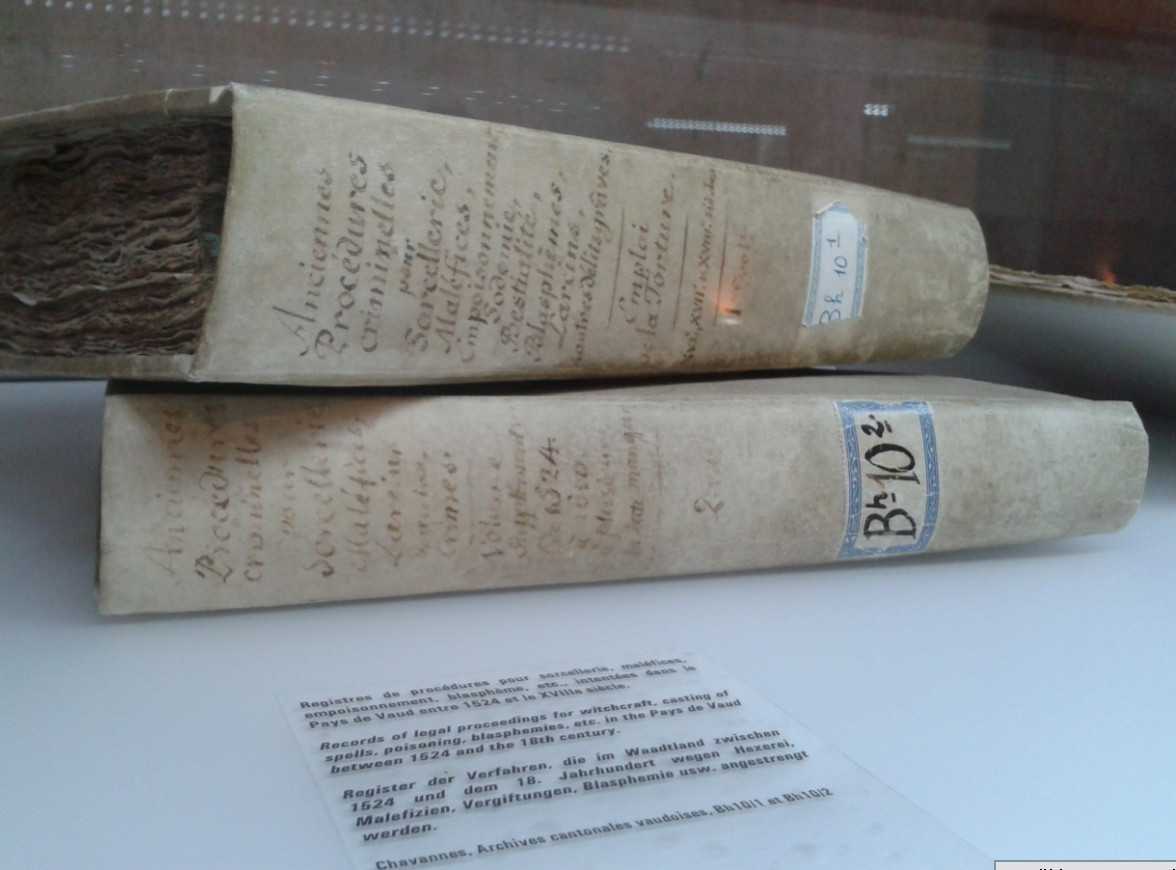 Anciennes
Procédures
criminelles
pour
Sorcellerie,
Maléfices,
Empoisonnement,
Sodomie,
Bestialité,
Blasphèmes,
Larcins,
et autres délits graves.
Emploi
de la Torture.
XVII
Bh 10 1
Anciennes
Procédures
criminelles
pour
Sorcellerie
Maléfices,
Larcins
Volume
De 1524
à
2
Bh 10 2.
Registres de procédures pour sorcellerie, maléfices,
empoisonnement, blasphème, etc., intentées dans le
Pays de Vaud entre 1524 et le XVIIIe siècle.
Records of legal proceedings for witchcraft, casting of
spells, poisoning, blasphemies, etc. in the Pays de Vaud
between 1524 and the 18th century.
Register der Verfahren, die im Waadtland zwischen
1524 und dem 18. Jahrhundert wegen Hexerei,
Malefizien, Vergiftungen, Blasphemie usw. angestrengt
werden.
Chavannes, Archives cantonales vaudoises, Bh10/1 et Bh10/2